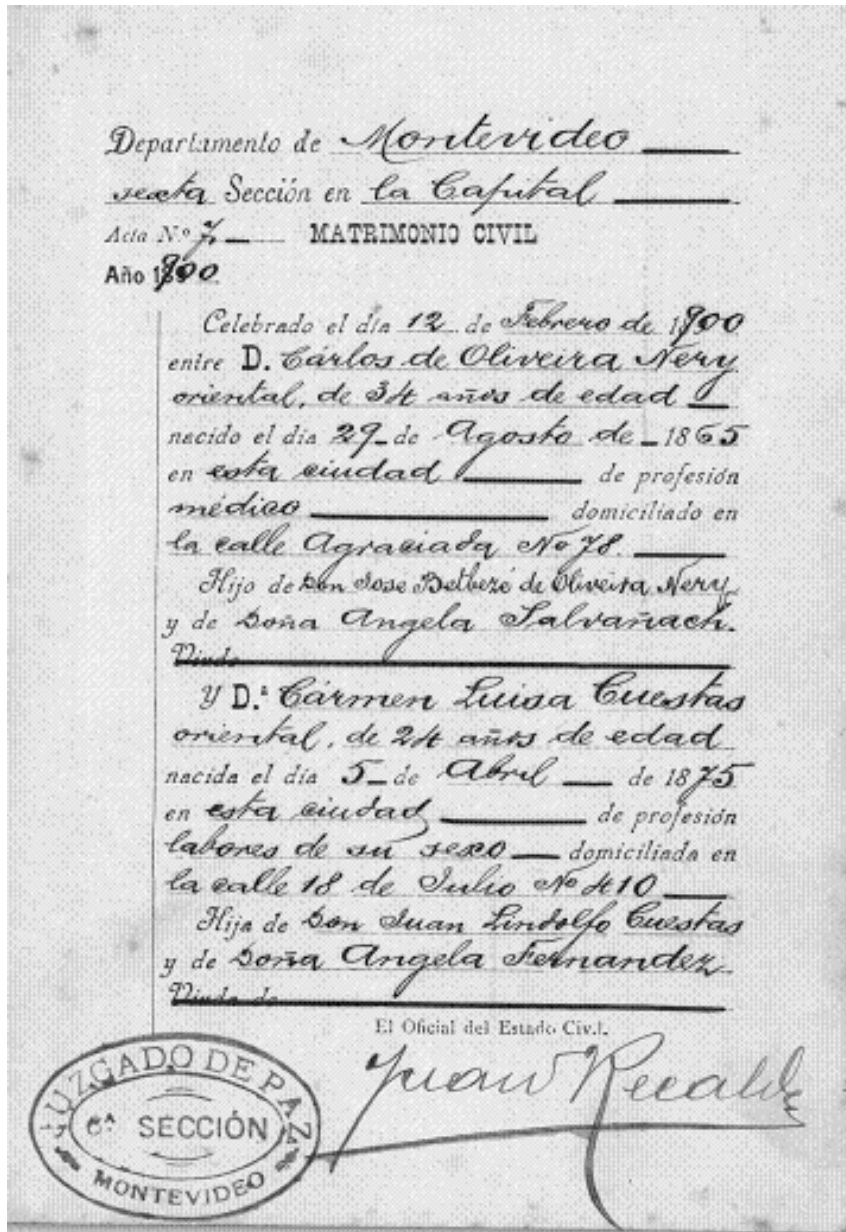 Departamento de Montevideo
sexta Sección en la Capital
Acta Nº 7 MATRIMONIO CIVIL
Año 1900
Celebrado el día 12 de Febrero de 1900
entre D. Cárlos de Oliveira Nery
oriental, de 34 años de edad
nacido el día 29 de Agosto de 1865
en esta ciudad de profesión
médico domiciliado en
la calle Agraciada Nº 78.
Hijo de Don Jose Betbezé de Oliveira Nery
y de Doña Angela Salvañach.
Viudo
y D.ª Cármen Luisa Cuestas
oriental, de 24 años de edad
nacida el día 5 de Abril de 1875
en esta ciudad de profesión
labores de su sexo domiciliada en
la calle 18 de Julio Nº 410
Hija de Don Juan Lindolfo Cuestas
y de Doña Angela Fernandez
Viuda de
El Oficial del Estado Civil.
Juan Recalde
JUZGADO DE PAZ
6ª SECCIÓN
MONTEVIDEO